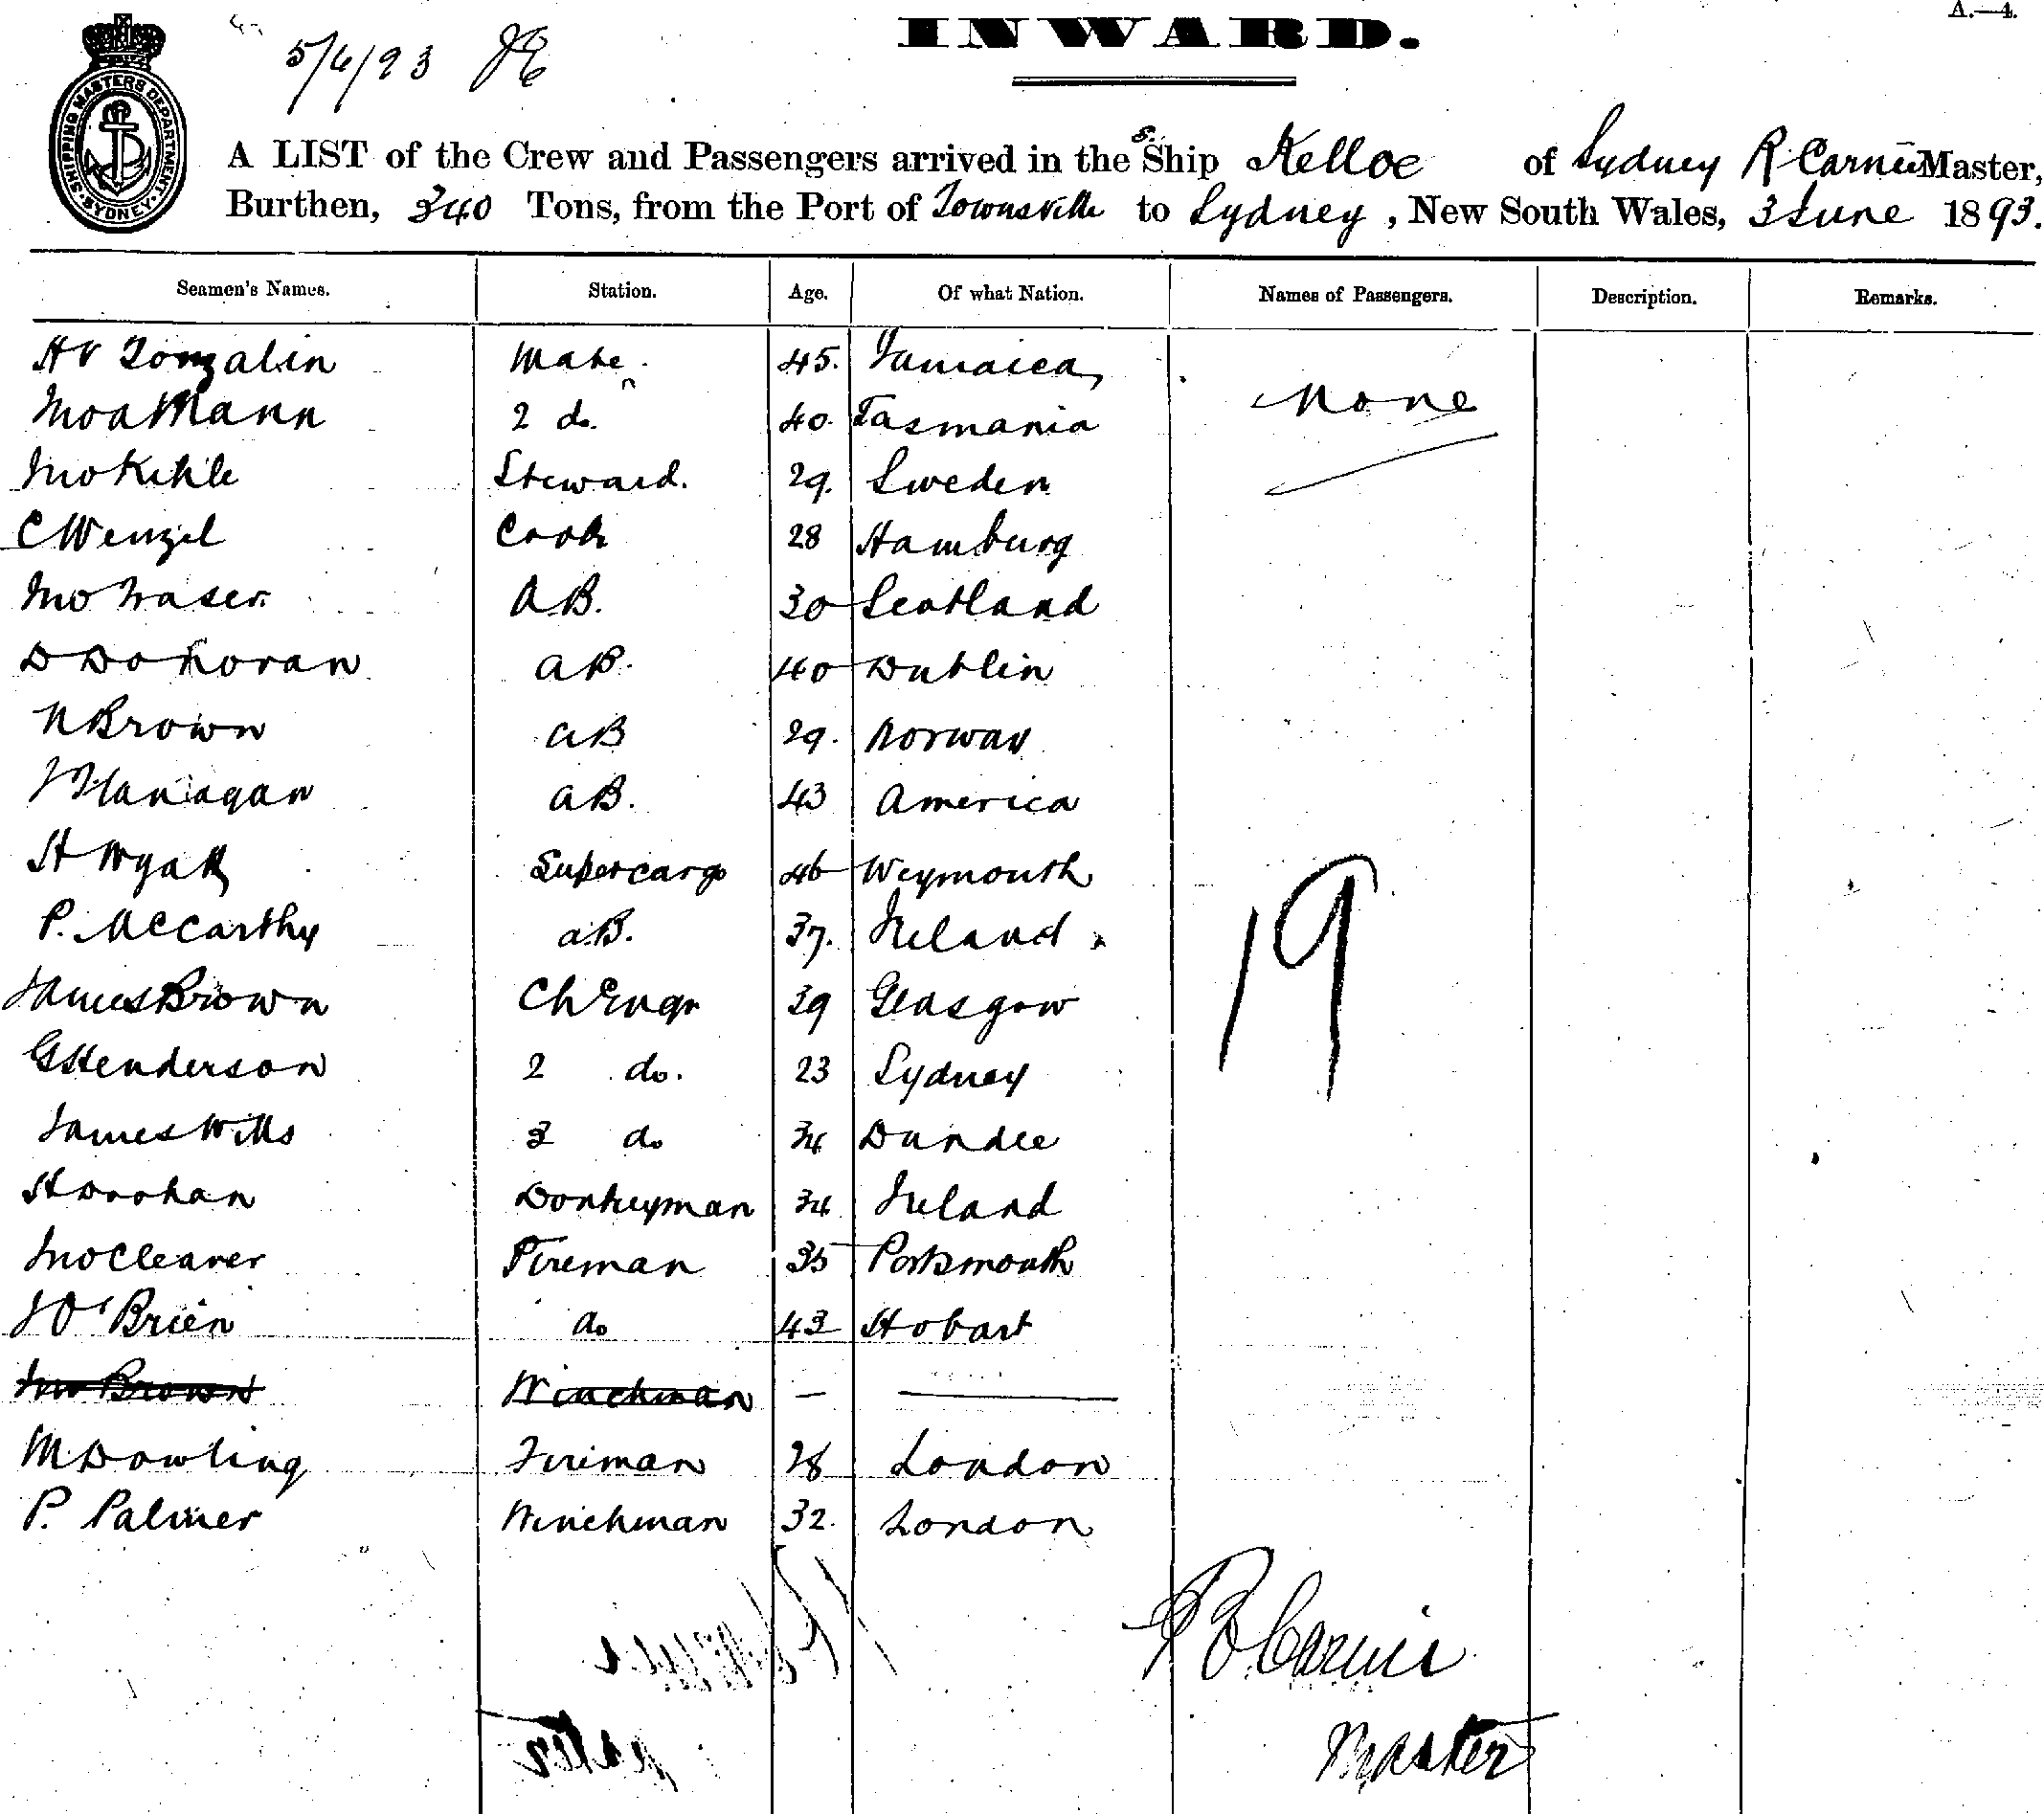 A.—4.
5/6/93 JE
INWARD.
SHIPPING MASTERS DEPARTMENT · SYDNEY ·
A LIST of the Crew and Passengers arrived in the S. Ship Kelloe of Sydney R Carnie Master,
Burthen, 340 Tons, from the Port of Townsville to Sydney, New South Wales, 3 June 1893.
Seamen's Names. Station. Age. Of what Nation. Names of Passengers. Description. Remarks.
HV Tonzalin Mate 45. Jamaica None
Mann 2 do. 40. Tasmania
Jno Kihle Steward. 29. Sweden
C Wenzel Cook 28 Hamburg
Jno Fraser A.B. 30 Scotland
D Donovan AB. 40 Dublin
N Brown AB 29. Norway
J Flanagan AB. 43 America
H Wyatt Supercargo 46 Weymouth
P. McCarthy AB. 37. Ireland
James Brown Ch Engr 39 Glasgow
19
G Henderson 2 do. 23 Sydney
James Wills 3 do 34 Dundee
H Doohan Donkeyman 34 Ireland
Jno Cleaver Fireman 35 Portsmouth
J O'Brien do 43 Hobart
Jno Brown Winchman — —
M Dowling Fireman 28 London
P. Palmer Winchman 32. London
Carnie
Master